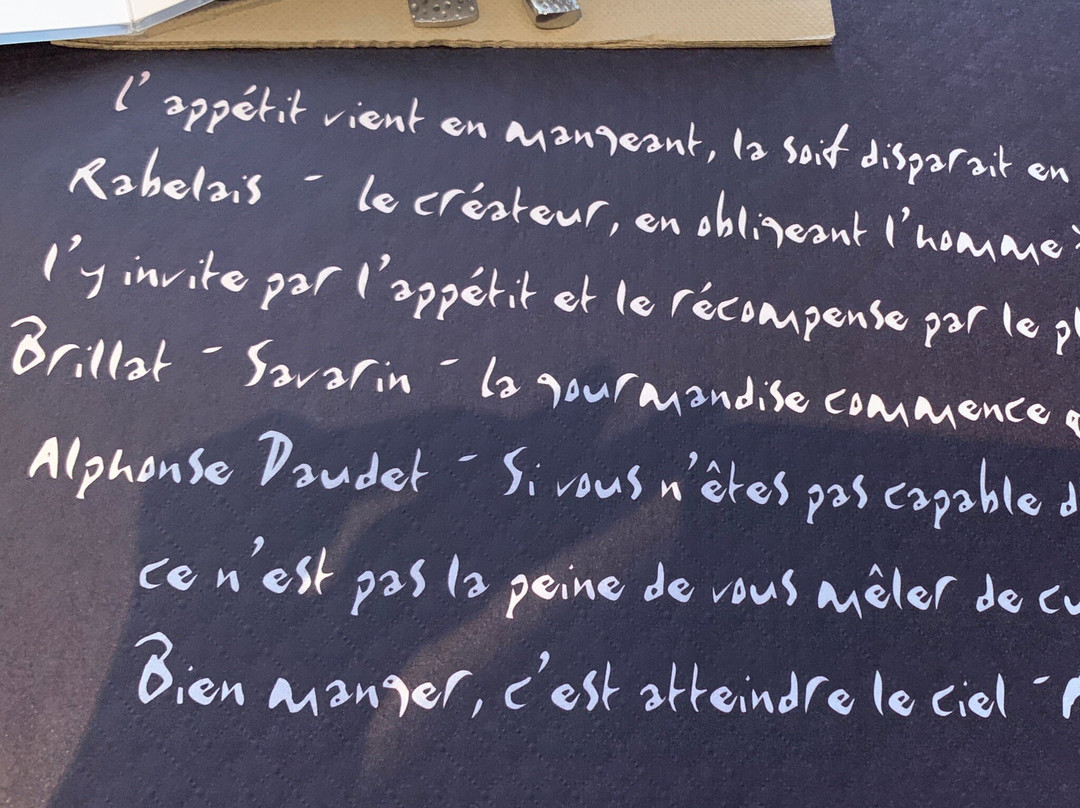 l'appétit vient en mangeant, la soif disparait en
Rabelais - le créateur, en obligeant l'homme
l'y invite par l'appétit et le récompense par le
Brillat - Savarin - la gourmandise commence
Alphonse Daudet - Si vous n'êtes pas capable
ce n'est pas la peine de vous mêler de
Bien manger, c'est atteindre le ciel -